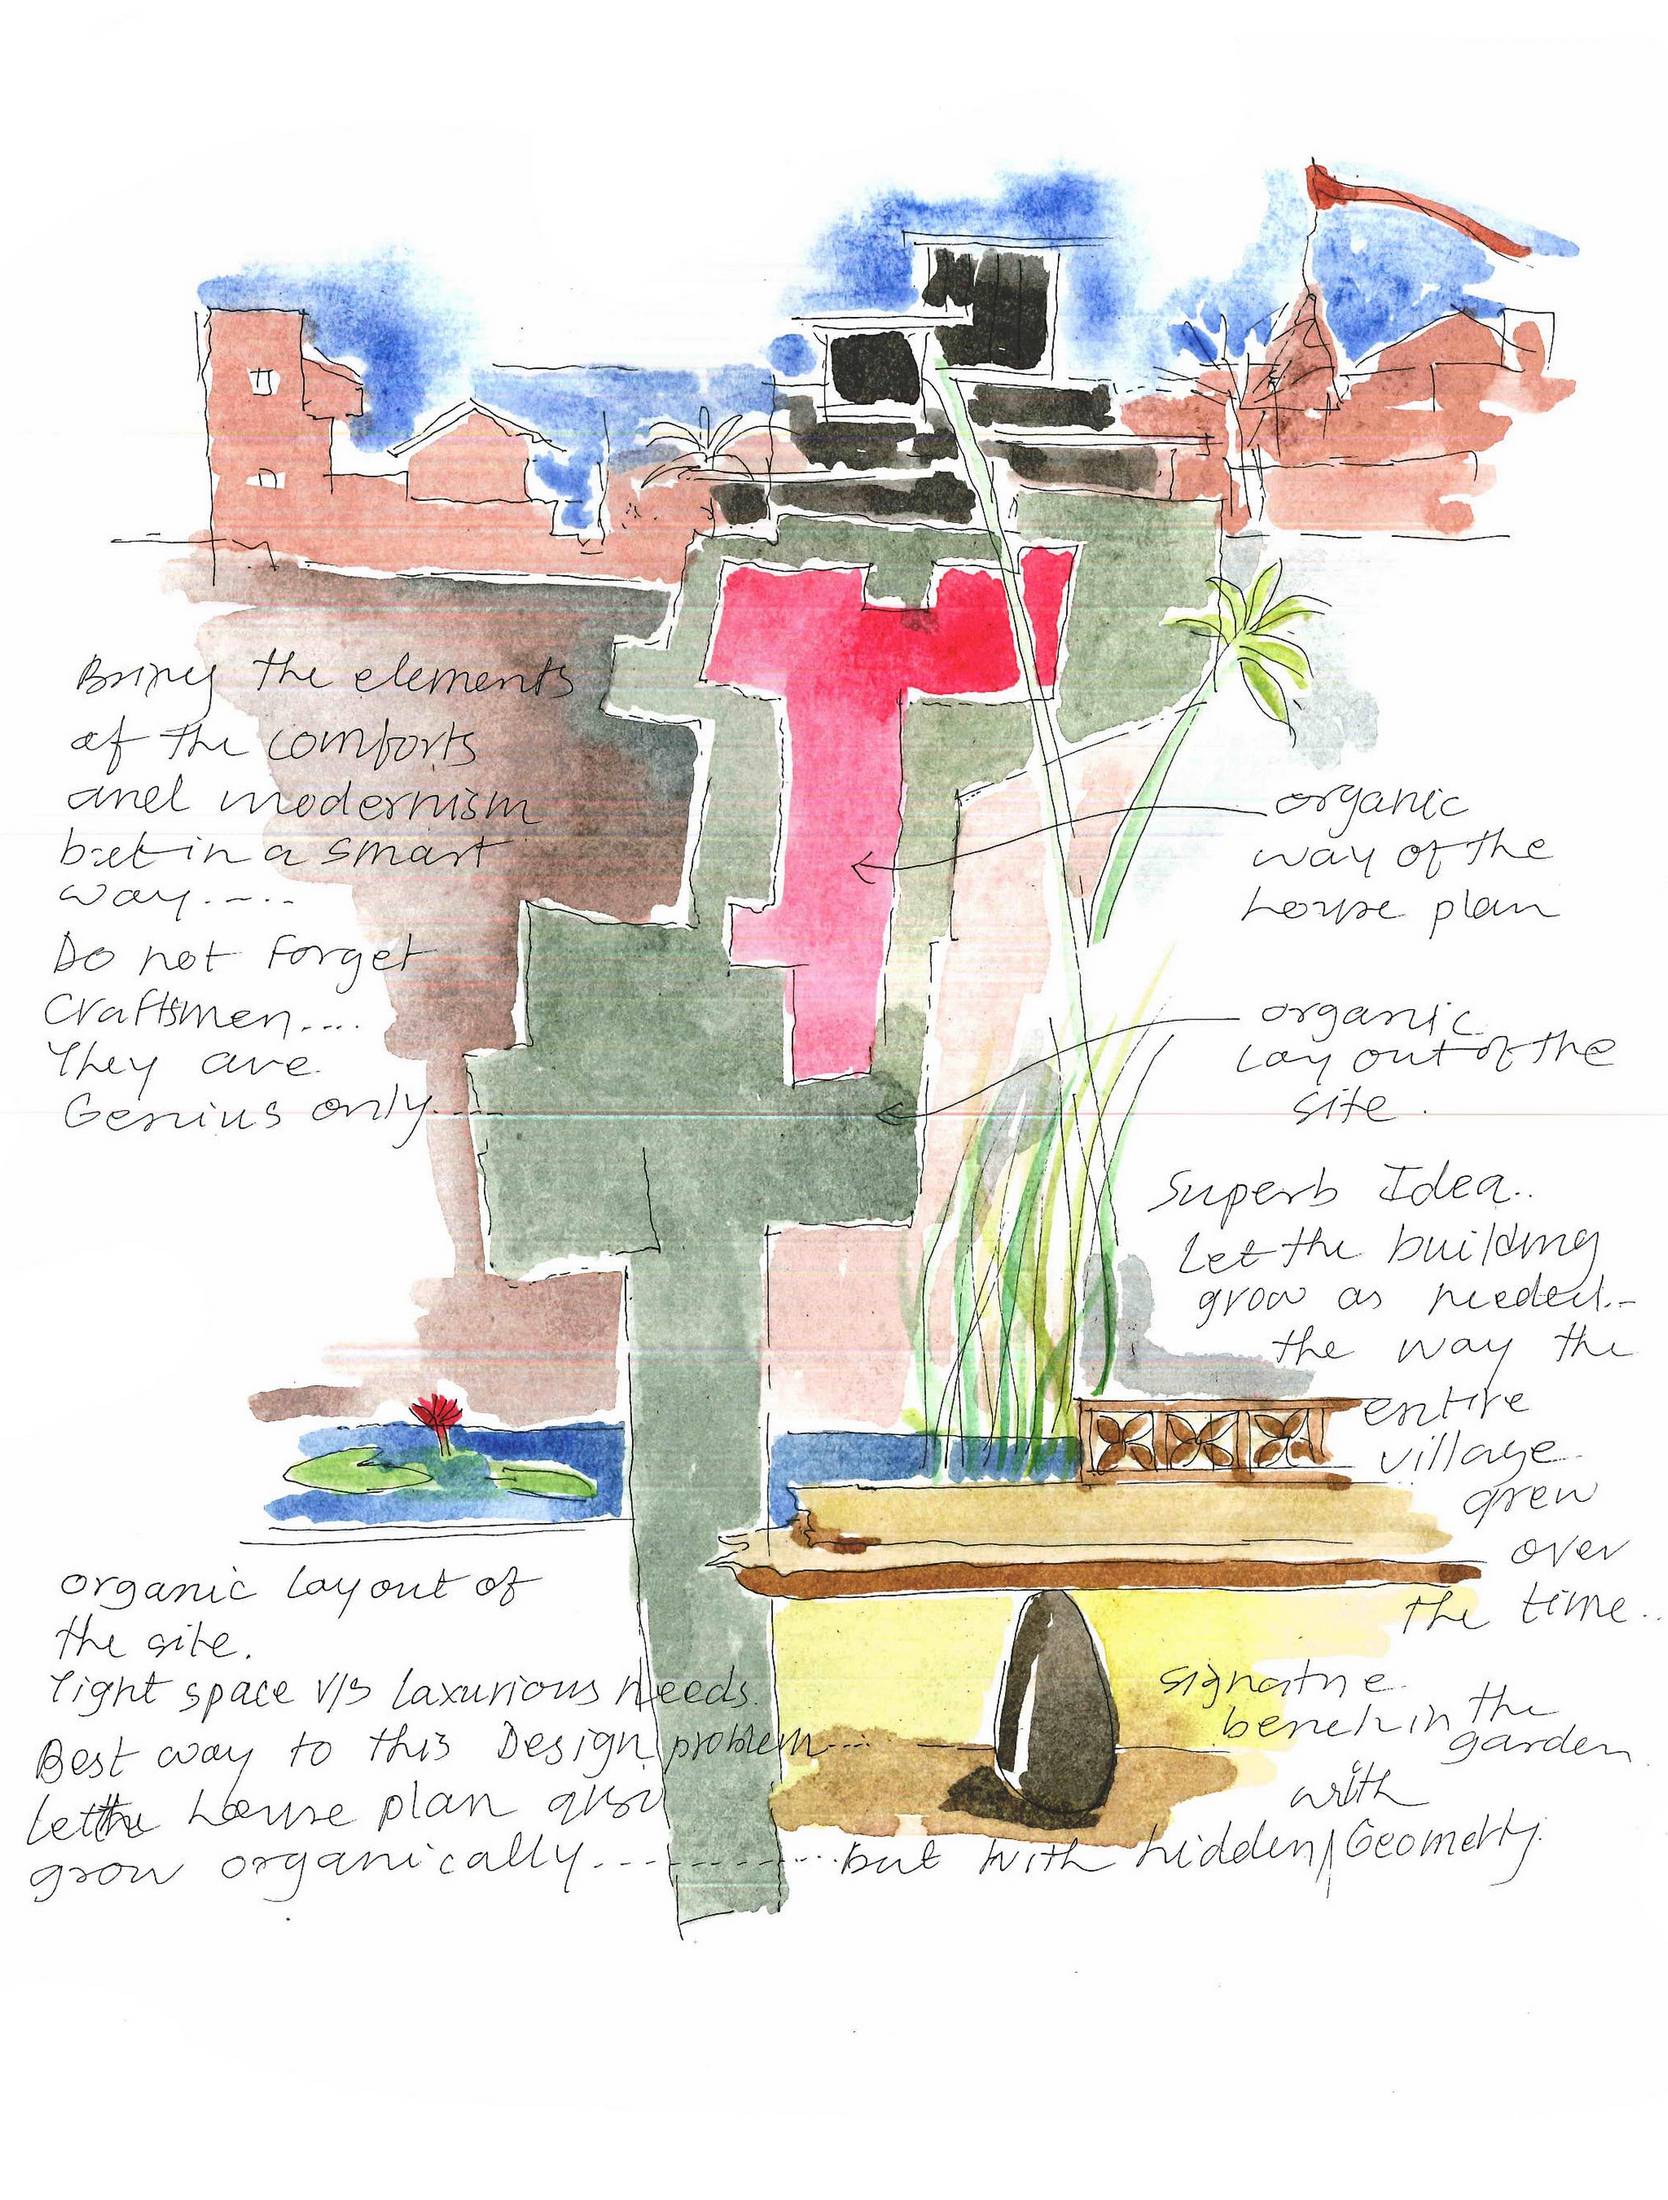 Bring the elements
of the comforts
and modernism
but in a smart
way.....
Do not forget
Craftsmen....
They are
Genius only....
organic
way of the
house plan
organic
Lay out of the
site.
Superb Idea..
Let the building
grow as needed..
the way the
entire
village
grew
over
the time..
organic layout of
the site.
Tight space V/S laxurious needs.
Best way to this Design problem....
let the house plan also
grow organically.............but with hidden Geometry.
signatre
bench in the
garden
with